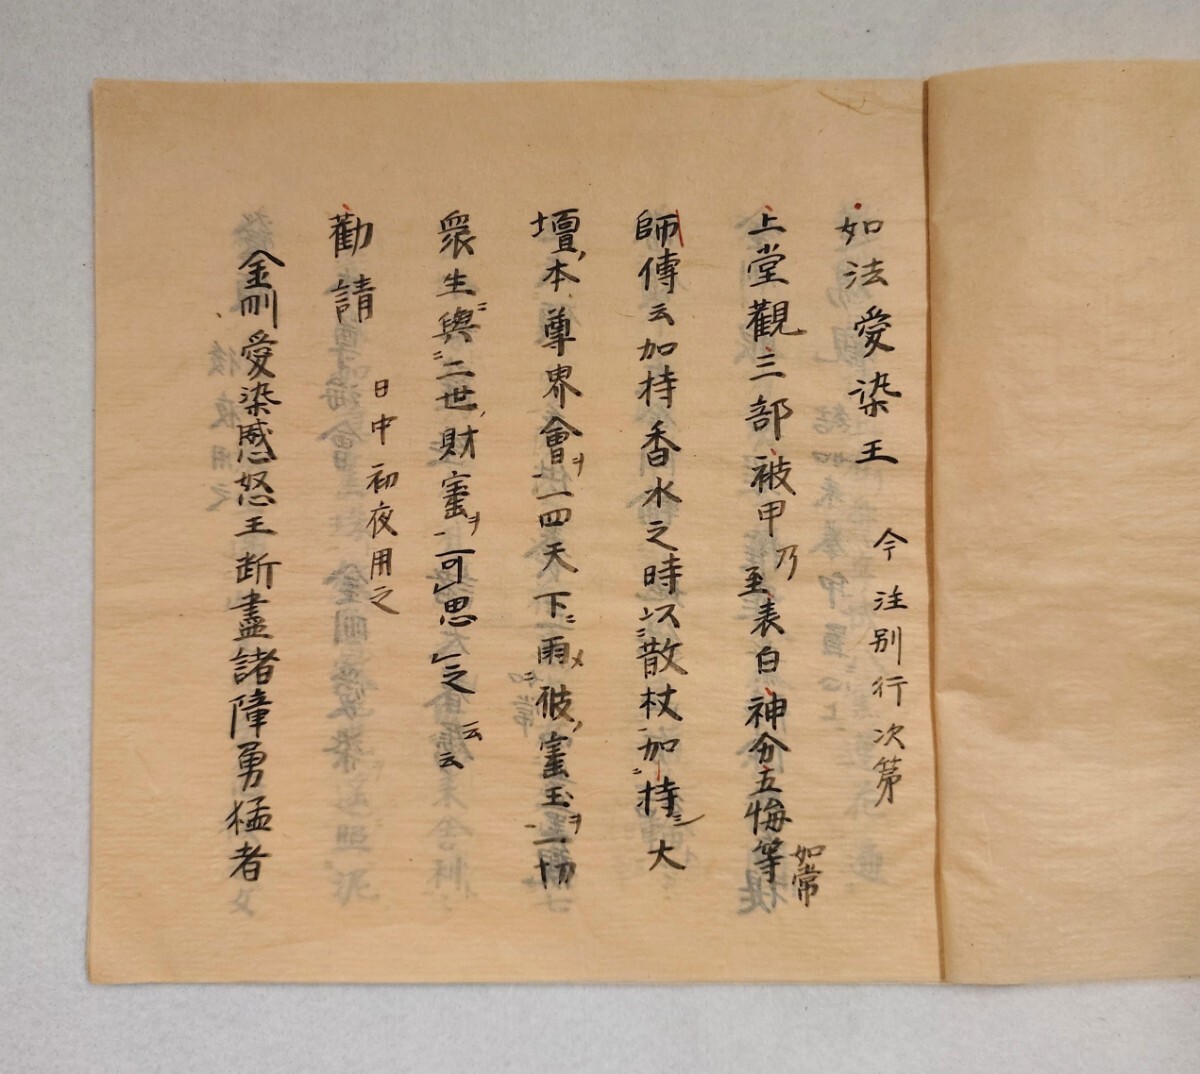 如法愛染王 今注別行次第
上堂觀三部被甲乃至表白神分五悔等如常
師傳云加持香水之時以散杖加持大
壇本尊界會ヲ一四天下雨彼寳玉ヲ一切
衆生與二世財寳ヲ可思之云云
勸請 日中初夜用之
金剛愛染威怒王断盡諸障勇猛者